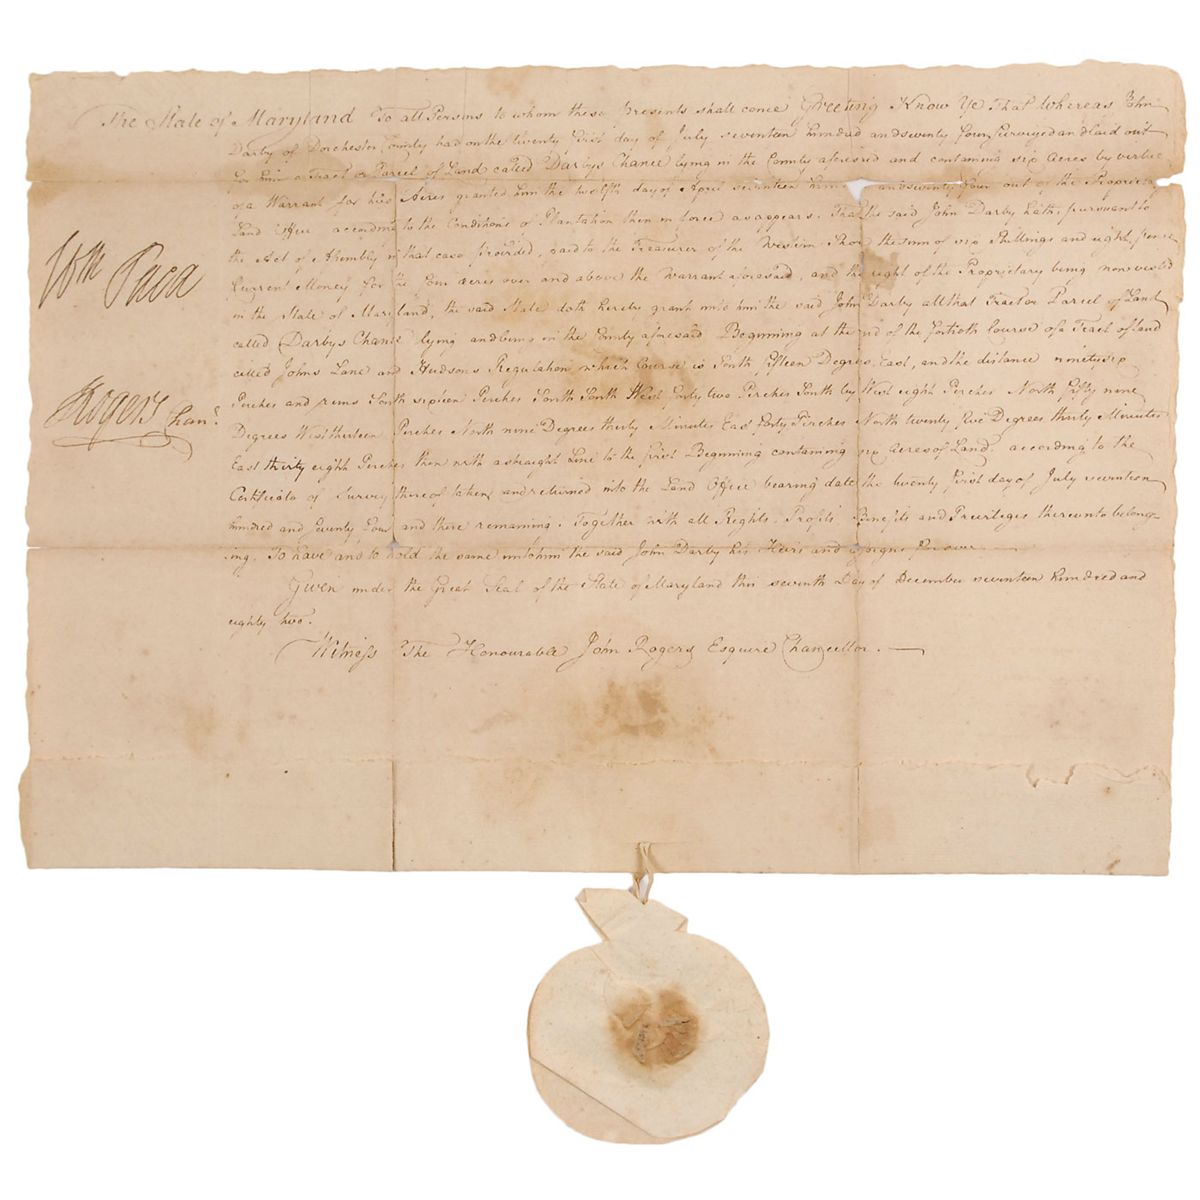 The State of Maryland To all Persons to whom these presents shall come Greeting Know Ye That Whereas John
Darby of Dorchester County had on the twenty first day of July seventeen hundred and seventy four surveyed and laid out
for him a Tract or Parcel of Land called Darbys Chance lying in the County aforesaid and containing six Acres by virtue
of a Warrant for two Acres granted him the twelfth day of April seventeen hund and seventy four out of the Proprietary
Land Office according to the Conditions of Plantation then in force as appears. That the said John Darby hath, pursuant to
the Act of Assembly in that case provided, paid to the Treasurer of the Western Shore the sum of six Shillings and eight pence
Current Money for the four acres over and above the Warrant aforesaid, and the right of the Proprietary being now vested
in the State of Maryland, the said State doth hereby grant unto him the said John Darby all that Tract or Parcel of Land
called Darbys Chance lying and being in the County aforesaid Beginning at the end of the fortieth Course of a Tract of land
called Johns Lane and Hudsons Regulation which Course is South fifteen Degrees East, and the distance ninety six
Perches and runs South sixteen Perches South South West forty two Perches South by West eight Perches North fifty nine
Degrees West thirteen Perches North nine Degrees thirty Minutes East forty Perches North twenty five Degrees thirty Minutes
East thirty eight Perches then with a straight Line to the first Beginning containing six Acres of Land according to the
Certificate of Survey thereof taken and returned into the Land Office bearing date the twenty first day of July seventeen
hundred and seventy four and there remaining. Together with all Rights Profits Benefits and Privileges thereunto belong-
ing. To have and to hold the same unto him the said John Darby his Heirs and assigns forever
Given under the Great Seal of the State of Maryland this seventh Day of December seventeen hundred and
eighty two.
Witness The Honourable John Rogers Esquire Chancellor.
Wm Paca
JRogers Chanr